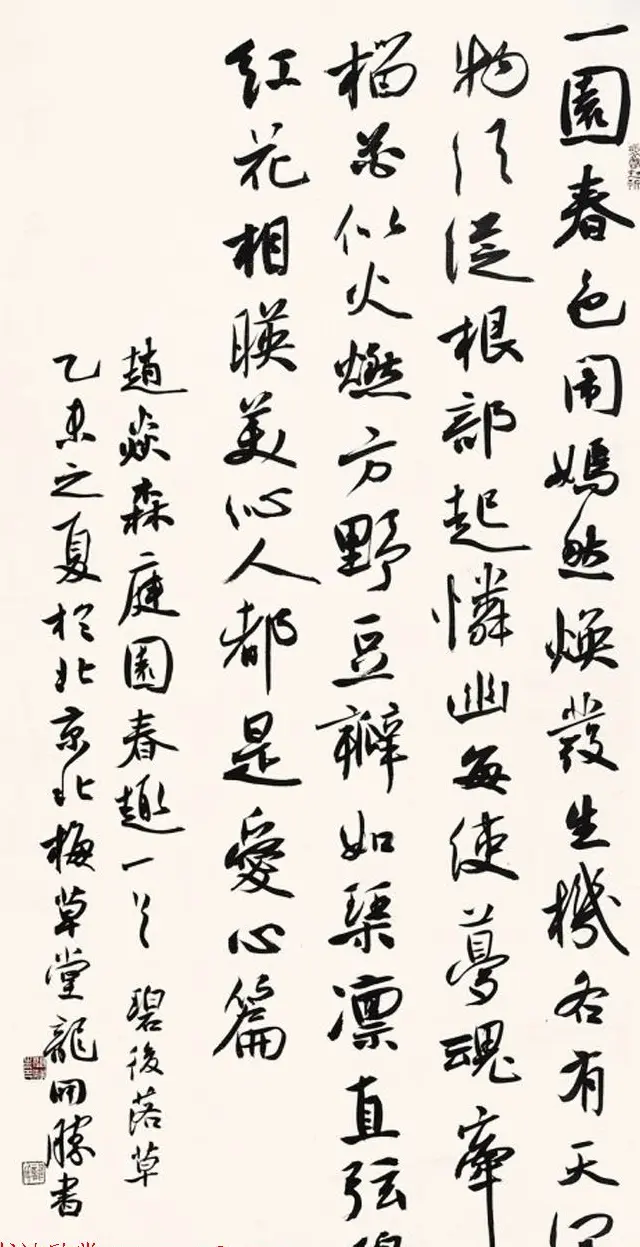 一園春色闹嫣然焕發生機各有天
物须從根部起憐幽每使夢魂牽
榴似火燃方野豆瓣如琹凛直弦
紅花相暎美似人都是愛心篇
趙焱森庭園春趣一首 碧後落草
乙未之夏於北京北梅草堂龍開勝書